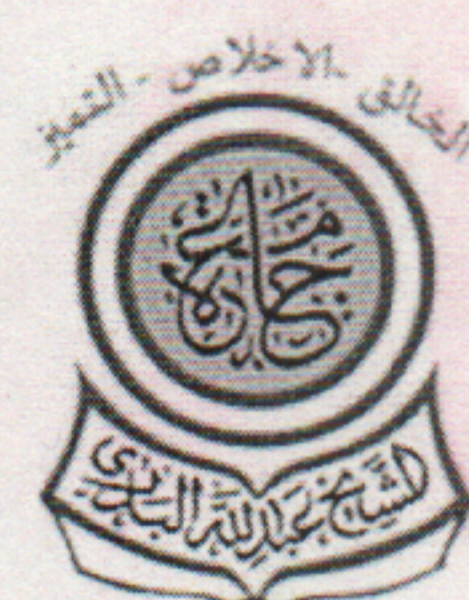 الخالق -الاخلاص - التميز
جامعة
الشيخ عبدالله البدري